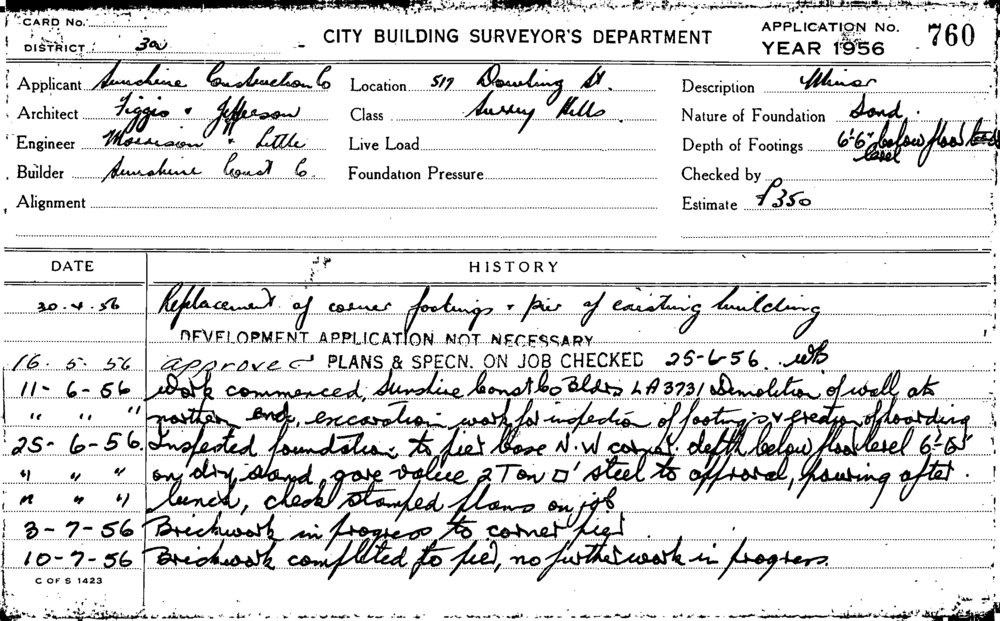 CARD No.
DISTRICT 3a
CITY BUILDING SURVEYOR'S DEPARTMENT
APPLICATION No. 760
YEAR 1956
Applicant Sunshine Construction Co
Location 517 Dowling St.
Description Minor
Architect Figgis & Jefferson
Class Surry Hills
Nature of Foundation Sand.
Engineer Morrison & Little
Live Load
Depth of Footings 6'-6" below floor level
Builder Sunshine Const Co.
Foundation Pressure
Checked by
Alignment
Estimate £350
DATE HISTORY
30.4.56 Replacement of corner footings & pier of existing building
DEVELOPMENT APPLICATION NOT NECESSARY
16. 5. 56 approved PLANS & SPECN. ON JOB CHECKED 25-6-56.
11-6-56 Work commenced, Sunshine Const Co Bldrs LA3731 Demolition of wall at
" " " northern end, excavation work for inspection of footings & erection of hoarding
25-6-56. Inspected foundation to pier base N.W corner, depth below floor level 6'-6"
" " " on dry sand, gave value 2 Ton □' steel to approval, pouring after
" " " lunch, check stamped plans on job
3-7-56 Brickwork in progress to corner pier
10-7-56 Brickwork completed to pier, no further work in progress.
C OF S 1423